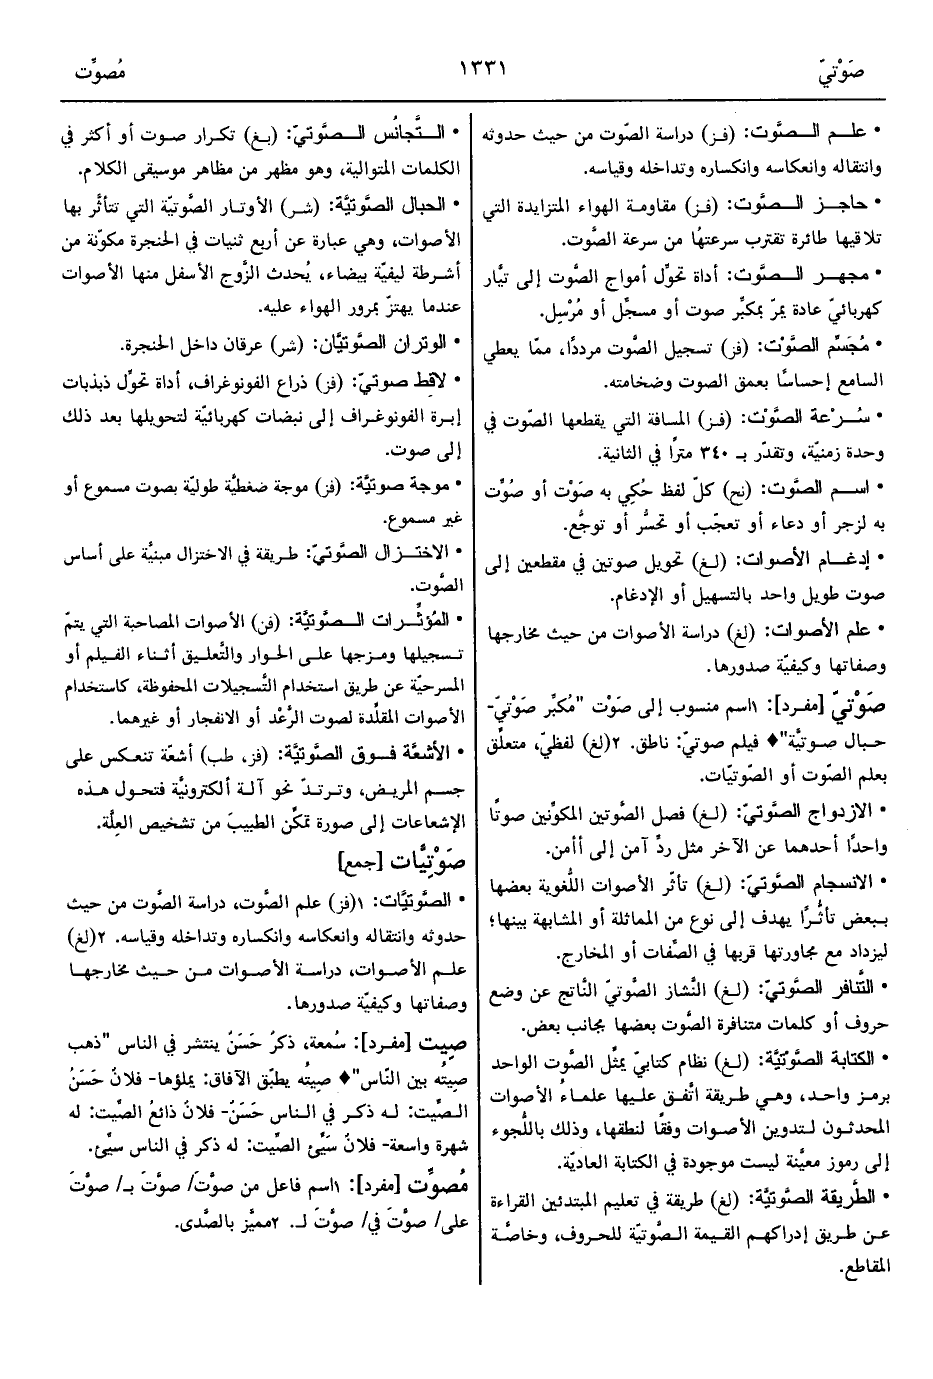 صَوْتيّ
١٣٣١
مُصوِّت
• علـم الـصَّوت: (فـز) دراسة الصَّوت من حيث حدوثه
وانتقاله وانعكاسه وانكساره وتداخله وقياسه.
• حاجـز الـصَّوت: (فـز) مقاومـة الهواء المتزايدة التي
تلاقيها طائرة تقترب سرعتهُا من سرعة الصَّوت.
• مجهـر الـصَّوت: أداة تحوِّل أمواج الصَّوت إلى تيَّار
كهربائيّ عادة يمرّ بمكبِّر صوت أو مسجِّل أو مُرْسِل.
• مُجَسِّم الصَّوْت: (فز) تسجيل الصَّوت مرددًا، ممّا يعطي
السامع إحساسًا بعمق الصوت وضخامته.
• سُـرْعة الصَّوْت: (فـز) المسافة التي يقطعها الصَّوت في
وحدة زمنيّة، وتقدّر بـ ٣٤٠ مترًا في الثانية.
• اسـم الصَّوت: (نح) كلّ لفظ حُكِي به صَوْت أو صُوِّت
به لزجر أو دعاء أو تعجّب أو تحسُّر أو توجُّع.
• إدغـام الأصوات: (لـغ) تحويل صوتين في مقطعين إلى
صوت طويل واحد بالتسهيل أو الإدغام.
• علم الأصوات: (لغ) دراسة الأصوات من حيث مخارجها
وصفاتها وكيفيّة صدورها.
صَوْتيّ [مفرد]: ١اسم منسوب إلى صَوْت "مُكبِّر صَوْتيّ-
حبال صـوتيَّة"♦ فيلم صوتيّ: ناطق. ٢(لغ) لفظيّ، متعلِّق
بعلم الصَّوت أو الصَّوتيّات.
• الازدواج الصَّوتيّ: (لـغ) فصل الصَّوتين المكوِّنين صوتًا
واحدًا أحدهما عن الآخر مثل ردِّ آمن إلى أأمن.
• الانسجام الصَّوتيّ: (لـغ) تأثّر الأصوات اللُّغوية بعضها
بـبعض تأثُّـرًا يهدف إلى نوع من المماثلة أو المشابهة بينها؛
ليزداد مع مجاورتها قربها في الصِّفات أو المخارج.
• التَّنافر الصَّوتيّ: (لـغ) النَّشاز الصَّوتيّ النَّاتج عن وضع
حروف أو كلمات متنافرة الصَّوت بعضها بجانب بعض.
• الكتابة الصَّوْتيَّة: (لـغ) نظام كتابيّ يمثِّل الصَّوت الواحد
برمز واحـد، وهـي طريقـة اتَّفـق عليها علمـاءُ الأصوات
المحدثـون لـتدوين الأصوات وفقًا لنطقها، وذلك باللُّجوء
إلى رموز معيَّنة ليست موجودة في الكتابة العاديّة.
• الطَّريقة الصَّوتيَّة: (لغ) طريقة في تعليم المبتدئين القراءة
عـن طريق إدراكهـم القيمة الـصَّوتيّة للحروف، وخاصَّـة
المقاطع.
• الـتَّجانُس الـصَّوتيّ: (بـغ) تكـرار صوت أو أكثر في
الكلمات المتوالية، وهو مظهر من مظاهر موسيقى الكلام.
• الحبال الصَّوتيَّة: (شر) الأوتـار الصَّوتيّة التي تتأثَّر بها
الأصوات، وهي عبارة عن أربع ثنيات في الحنجرة مكوّنة من
أشرطة ليفيَّة بيضاء، يُحدث الزَّوج الأسفل منها الأصوات
عندما يهتزّ بمرور الهواء عليه.
• الوتران الصَّوتيَّان: (شر) عرقان داخل الحنجرة.
• لاقِط صوتيّ: (فز) ذراع الفونوغراف، أداة تحوِّل ذبذبات
إبـرة الفونوغراف إلى نبضات كهربائيّة لتحويلها بعد ذلك
إلى صوت.
• موجة صوتيَّة: (فز) موجة ضغطيَّة طوليّة بصوت مسموع أو
غير مسموع.
• الاختـزال الصَّوتيّ: طريقة في الاختزال مبنيَّة على أساس
الصَّوت.
• المُؤثِّـرات الـصَّوتيَّة: (فن) الأصوات المصاحبة التي يتمّ
تـسجيلها ومـزجها علـى الحوار والتَّعلـيق أثـناء الفـيلم أو
المسرحيّة عن طريق استخدام التَّسجيلات المحفوظة، كاستخدام
الأصوات المقلِّدة لصوت الرَّعْد أو الانفجار أو غيرهما.
• الأشعَّة فـوق الصَّوتيَّة: (فز، طب) أشعّة تنعـكس على
جسم المريـض، وتـرتـدّ نحو آلـة ألكترونيَّة فتحول هـذه
الإشعاعات إلى صورة تمكِّن الطبيبَ من تشخيص العِلَّة.
صَوْتيَّات [جمع]
• الصَّوتيَّات: ١(فز) علم الصَّوت، دراسة الصَّوت من حيث
حدوثه وانتقاله وانعكاسه وانكساره وتداخله وقياسه. ٢(لغ)
علـم الأصـوات، دراسـة الأصـوات مـن حـيث مخارجهـا
وصفاتها وكيفيّة صدورها.
صِيت [مفـرد]: سُمعة، ذكرٌ حَسَنٌ ينتشر في الناس "ذهب
صِيتُه بين النّاس"♦ صِيتُه يطبِّق الآفاق: يملؤها- فلانٌ حَسَنُ
الـصِّيت: لـه ذكـر في الـناس حَسَنٌ- فلانٌ ذائعُ الصِّيت: له
شهرة واسعة- فلانٌ سَيِّئ الصِّيت: له ذكر في الناس سيِّئ.
مُصوِّت [مفرد]: ١اسم فاعل من صوَّتَ/ صوَّتَ بـ/ صوَّتَ
على/ صوَّتَ في/ صوَّتَ لـ. ٢مميَّز بالصَّدى.